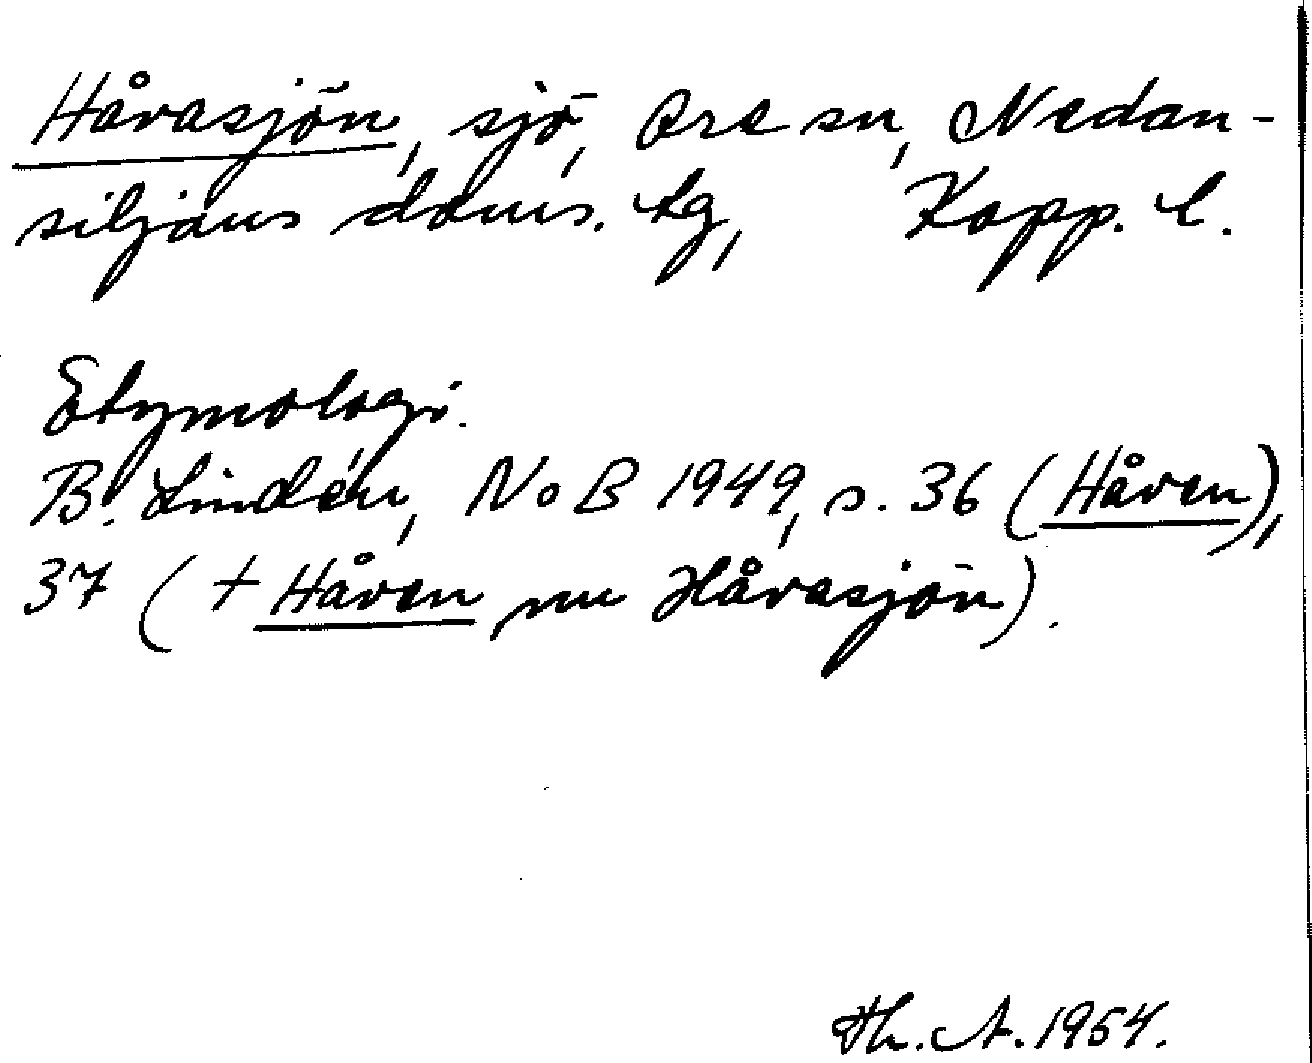 Håvasjön, sjö, Ore sn, Nedan-
siljans doms. tg, Kopp. l.
Etymologi.
B. Lindén, NoB 1949, s. 36 (Håven),
37 (+ Håven, nu Håvasjön).
Th. A. 1954.